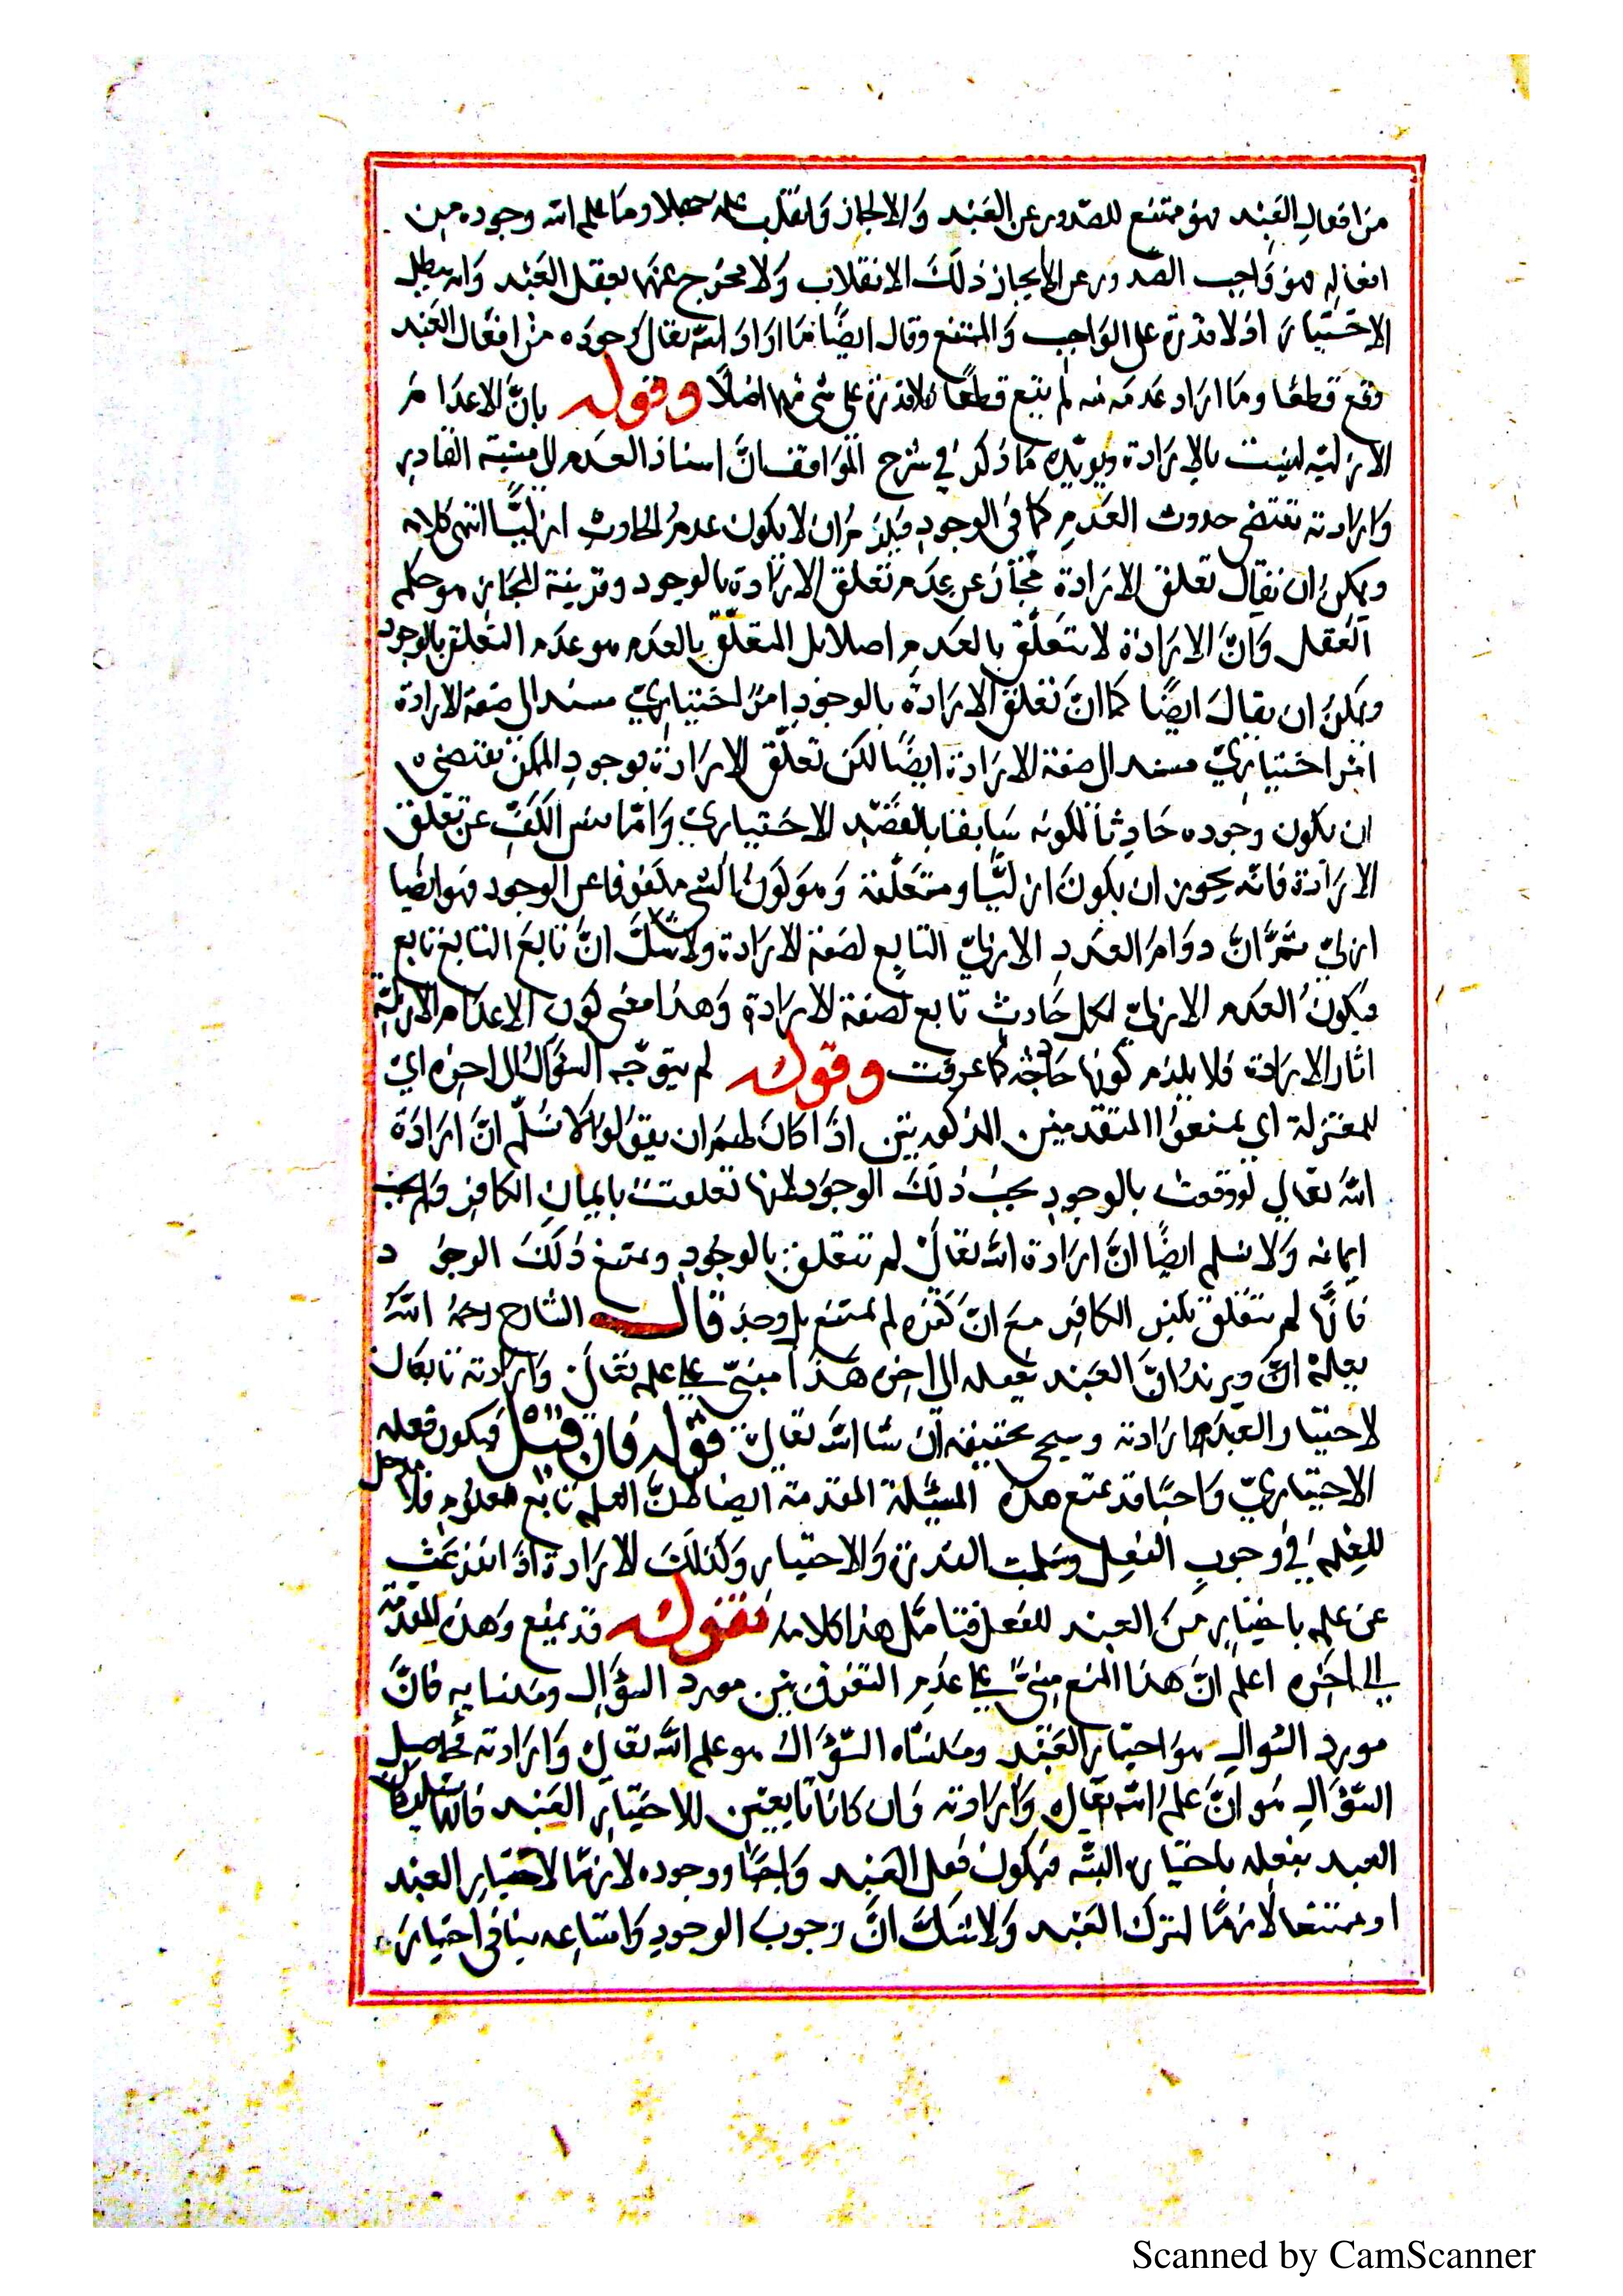 من افعال العبد فهو ممتنع الصدور عن العبد والا لجاز وانقلب علمه جهلا وما علم الله وجوده من
افعاله فهو واجب الصدور عن والا لجاز ذلك الانقلاب ولا مخرج عنهما لفعل العبد وانه يبطل
الاختيار اذ لا قدرة على الواجب والممتنع وقال ايضًا ما اراد الله تعالى وجوده من افعال العبد
وقع قطعًا وما اراد عدمه منه لم يقع قطعًا فلا قدرة على شي منها اصلًا وقوله بانَّ الاعدام
الازلية ليست بالارادة ويويّده ما ذكر في شرح المواقف انَّ اسناد العدم الى مشية القادر
وارادته تقتضي حدوث العدم كما في الوجود فيلزم ان لا يكون عدم الحادث ازليًّا انتهى كلامه
ويمكن ان يقال تعلق الارادة مجاز عن عدم تعلق الارادة بالوجود وقرينة المجاز هو حكم
العقل وانَّ الارادة لا تتعلّق بالعدم اصلا بل المتعلّق بالعدم هو عدم التعلق بالوجود
ويمكن ان يقال ايضًا كما انَّ تعلق الارادة بالوجود امرٌ اختياريّ مسند الى صفة الارادة
امر اختياريّ مسند الى صفة الارادة ايضًا لكن تعلّق الارادة بوجود الممكن يقتضي
ان يكون وجوده حادثًا لكونه سابقا بالقصد الاختياريّ وامّا نفس الكفّ عن تعلق
الارادة فانّه يجوز ان يكون ازليًّا ومتعلّقه وهو كون الشي مكفوفا عن الوجود فهو ايضا
ازليّ ثمّ انَّ دوام العدم الازليّ التابع لصفة الارادة ولا شكّ انَّ تابع التابع تابع
فيكون العدم الازليّ لكل حادث تابع لصفة الارادة وهذا معنى كون الاعدام الازليّة
اثار الارادة فلا يلزم كونها حادثة كما عرفت وقوله لم يتوجّه السؤال الى اخره اي
للمعتزلة اي يمنعوا المتقدمين المذكورتين اذا كان لهم ان يقولوا لا نسلّم انَّ ارادة
الله تعالى لو وقعت بالوجود يجب ذلك الوجود لانها تعلقت بايمان الكافر ولم يجب
ايمانه ولا نسلم ايضًا انَّ ارادة الله تعالى لم تتعلق بالوجود ويمتنع ذلك الوجود
فانّها لم تتعلق بكفر الكافر مع انَّ كفره لم يمتنع بل وجد قال الشارح رحمه الله
يعلم انّ ويريد انَّ العبد يفعله الى اخره هذا مبنيّ على علم تعالى وارادته تابعان
لاختيار العبد وارادته وسيجي تحقيقه ان شا الله تعالى قوله فان قيل فيكون فعله
الاختياريّ واجبًا قد يمنع هذه المسئلة المقدمة ايضا لانَّ العلم تابع للمعلوم فلا مدخل
للعلم في وجوب الفعل وسلب القدرة والاختيار وكذلك الارادة اذا انبعثت
عن علم باختيار من العبد للفعل فتامّل هذا كلامه فقوله قد يمنع وهذه المقدمة
الى اخره اعلم انَّ هذا المنع مبنيّ على عدم التفرقة بين مورد السؤال ومنشايه فانَّ
مورد السؤال هو اختيار العبد ومنشاه السّؤال هو علم الله تعالى وارادته فحاصل
السّؤال هو انَّ علم الله تعالى وارادته وان كانا تابعين لاختيار العبد
العبد بفعله باختياره البتّه فيكون فعل العبد واجبًا ووجوده لازمًا لاختيار العبد
او ممتنعا لازمًا لترك العبد ولا شكّ انَّ وجوب الوجود وامتناعه ينافي اختياره
Scanned by CamScanner